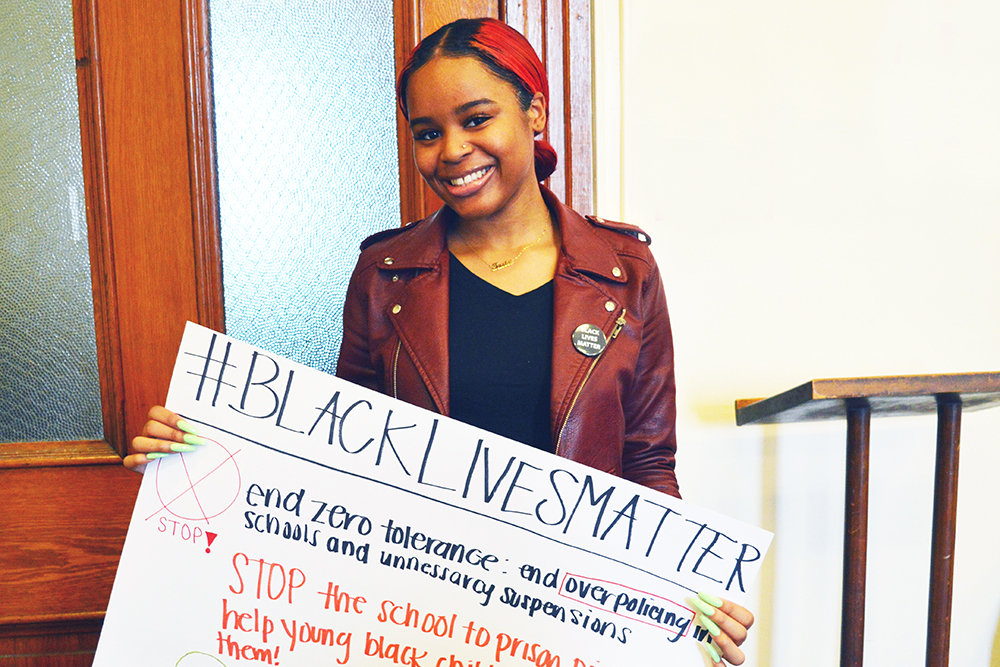 BLACK
LIVES
MATTER
#BLACKLIVESMATTER
STOP!
end zero tolerance: end overpolicing in
schools and unnessarcy suspensions
STOP the school to prison
help young black
them!